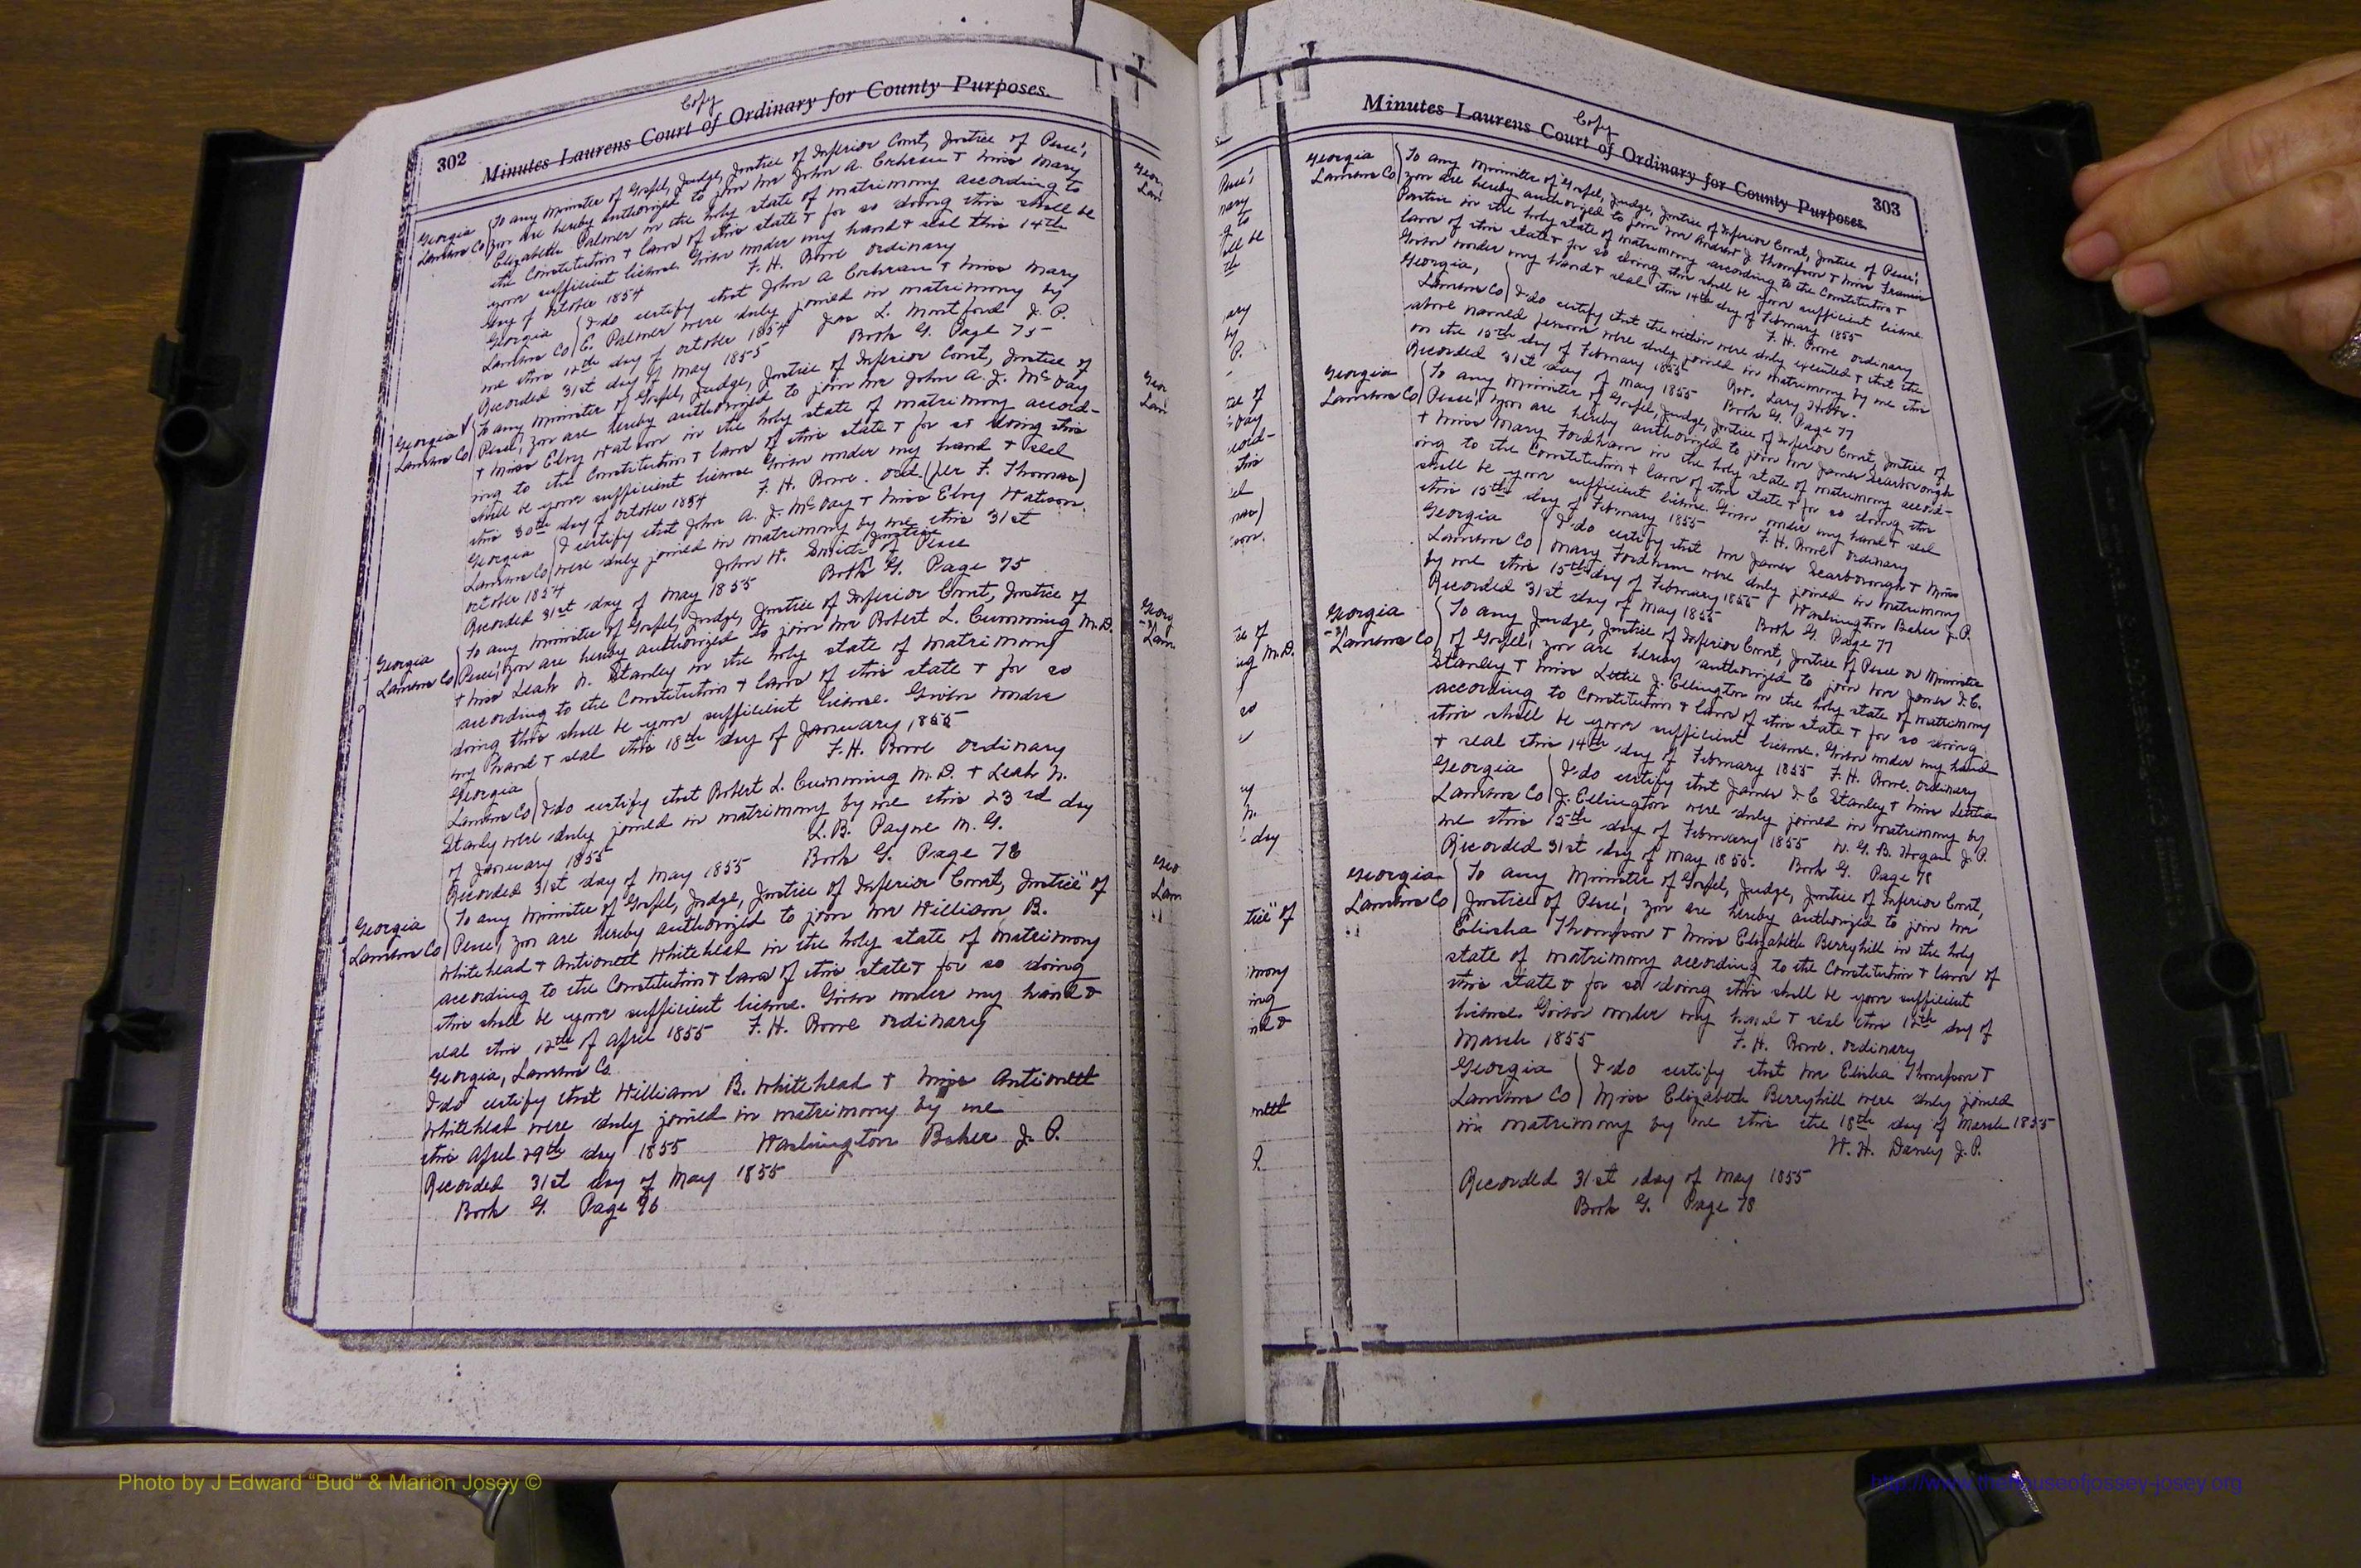 Copy
302 Minutes Laurens Court of Ordinary for County Purposes.
Georgia
Laurens Co
To any Minister of Gospel, Judge, Justice of Inferior Court, Justice of Peace;
you are hereby authorized to join Mr John A. Cochran & Miss Mary
Elizabeth Palmer in the holy state of matrimony according to
the Constitution & laws of this state & for so doing this shall be
your sufficient license. Given under my hand & seal this 14th
day of October 1854 F. H. Rowe Ordinary
Georgia
Laurens Co
I do certify that John A Cochran & Miss Mary
E. Palmer were duly joined in matrimony by
me this 12th day of October 1854 Jas L. Montford J. P.
Recorded 31st day of May 1855 Book G. Page 75
Georgia
Laurens Co
To any Minister of Gospel, Judge, Justice of Inferior Court, Justice of
Peace; you are hereby authorized to join Mr John A. J. McDay
& Miss Elvy Watson in the holy state of matrimony accord-
ing to the Constitution & laws of this state & for so doing this
shall be your sufficient license Given under my hand & seal
this 30th day of October 1854 F. H. Rowe. Ord. (per F. Thomas)
Georgia
Laurens Co
I certify that John A. J. McDay & Miss Elvy Watson.
were duly joined in matrimony by me this 31st
October 1854 John W. Smith Justice of Peace
Recorded 31st day of May 1855 Book G. Page 75
Georgia
Laurens Co
To any Minister of Gospel, Judge, Justice of Inferior Court, Justice of
Peace; you are hereby authorized to join Mr Robert L. Cumming M.D.
& Miss Leah N. Stanley in the holy state of matrimony
according to the Constitution & laws of this state & for so
doing this shall be your sufficient license. Given under
my hand & seal this 18th day of January 1855
F. H. Rowe Ordinary
Georgia
Laurens Co
I do certify that Robert L. Cumming M.D. & Leah N.
Stanly were duly joined in matrimony by me this 23rd day
of January 1855 L. B. Payne M. G.
Recorded 31st day of May 1855 Book G. Page 76
Georgia
Laurens Co
To any Minister of Gospel, Judge, Justice of Inferior Court, Justice" of
Peace; you are hereby authorized to join Mr William B.
Whitehead & Antionett Whitehead in the holy state of matrimony
according to the Constitution & laws of this state & for so doing
this shall be your sufficient license. Given under my hand &
seal this 12th of April 1855 F. H. Rowe Ordinary
Georgia, Laurens Co
I do certify that William B. Whitehead & Miss Antionett
Whitehead were duly joined in matrimony by me
this April 29th day 1855 Washington Baker J. P.
Recorded 31st day of May 1855
Book G. Page 76
Copy
Minutes Laurens Court of Ordinary for County Purposes. 303
Georgia
Laurens Co
To any Minister of Gospel, Judge, Justice of Inferior Court, Justice of Peace;
you are hereby authorized to join Mr Andrew J Thompson & Miss Francis
Partin in the holy state of matrimony according to the Constitution &
laws of this state & for so doing this shall be your sufficient license
Given under my hand & seal this 14th day of February 1855
F. H. Rowe Ordinary
Georgia,
Laurens Co
I do certify that the within were duly executed & that the
above named persons were duly joined in matrimony by me this
on the 15th day of February 1855 Rev. Lary Hobbs.
Recorded 31st day of May 1855 Book G. Page 77
Georgia
Laurens Co
To any Minister of Gospel, Judge, Justice of Inferior Court, Justice of
Peace; you are hereby authorized to join Mr James Scarborough
& Miss Mary Fordham in the holy state of matrimony accord-
ing to the Constitution & laws of this state & for so doing this
shall be your sufficient license. Given under my hand & seal
this 15th day of February 1855 F. H. Rowe Ordinary
Georgia
Laurens Co
I do certify that Mr James Scarborough & Miss
Mary Fordham were duly joined in matrimony
by me this 15th day of February 1855 Washington Baker J. P.
Recorded 31st day of May 1855 Book G. Page 77
Georgia
Laurens Co
To any Judge, Justice of Inferior Court, Justice of Peace or Minister
of Gospel; you are hereby authorized to join Mr James I. C.
Stanley & Miss Lettie J. Ellington in the holy state of matrimony
according to Constitution & laws of this state & for so doing
this shall be your sufficient license. Given under my hand
& seal this 14th day of February 1855 F. H. Rowe, Ordinary
Georgia
Laurens Co
I do certify that James I. C Stanley & Miss Letitia
J. Ellington were duly joined in matrimony by
me this 15th day of February 1855 W. G. B. Hogan J. P.
Recorded 31st day of May 1855. Book G. Page 78
Georgia
Laurens Co
To any Minister of Gospel, Judge, Justice of Inferior Court,
Justice of Peace; you are hereby authorized to join Mr
Elisha Thompson & Miss Elizabeth Berryhill in the holy
state of matrimony according to the Constitution & laws of
this state & for so doing this shall be your sufficient
license. Given under my hand & seal this 12th day of
March 1855 F. H. Rowe. Ordinary
Georgia
Laurens Co
I do certify that Mr Elisha Thompson &
Miss Elizabeth Berryhill were duly joined
in matrimony by me this the 18th day of March 1855
W. H. Daney J. P.
Recorded 31st day of May 1855
Book G. Page 78
Photo by J Edward “Bud” & Marion Josey ©
http://www.thehouseofjossey-josey.org